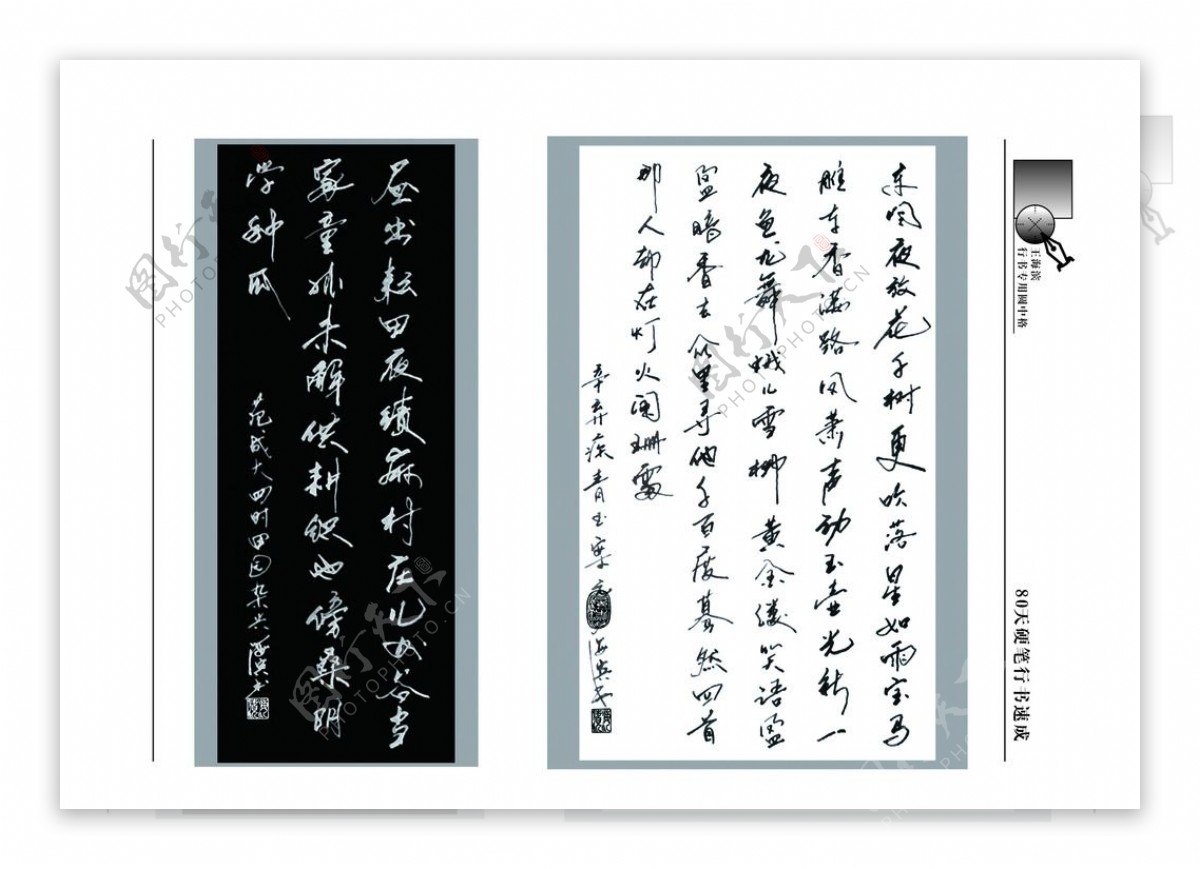 王海滨
行书专用圆中格
80天硬笔行书速成
东风夜放花千树更吹落星如雨宝马
雕车香满路凤萧声动玉壶光转一
夜鱼龙舞蛾儿雪柳黄金缕笑语盈
盈暗香去众里寻他千百度蓦然回首
那人却在灯火阑珊处
辛弃疾青玉案 海滨书
昼出耘田夜绩麻村庄儿女各当
家童孙未解供耕织也傍桑阴
学种瓜
范成大四时田园杂兴海滨书
图行天下
PHOTOPHOTO.CN